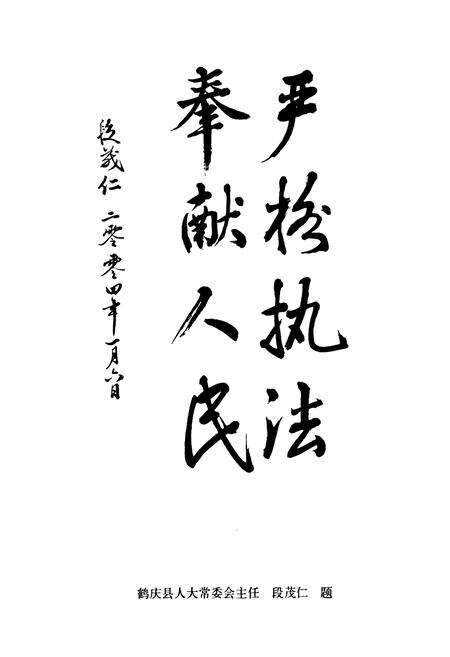 严格执法
奉献人民
段茂仁 二零零四年一月六日
鹤庆县人大常委会主任 段茂仁 题